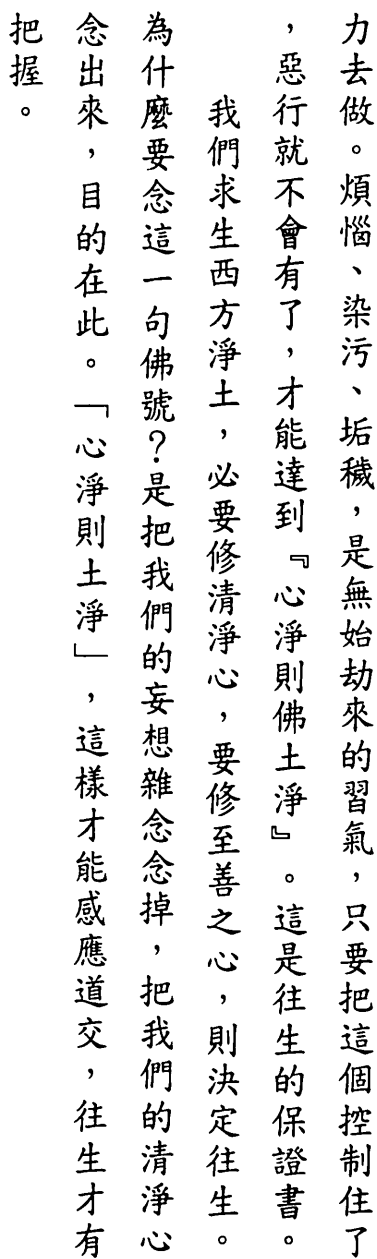 力去做。煩惱、染污、垢穢，是無始劫來的習氣，只要把這個控制住了
，惡行就不會有了，才能達到『心淨則佛土淨』。這是往生的保證書。
我們求生西方淨土，必要修清淨心，要修至善之心，則決定往生。
為什麼要念這一句佛號？是把我們的妄想雜念念掉，把我們的清淨心
念出來，目的在此。「心淨則土淨」，這樣才能感應道交，往生才有
把握。